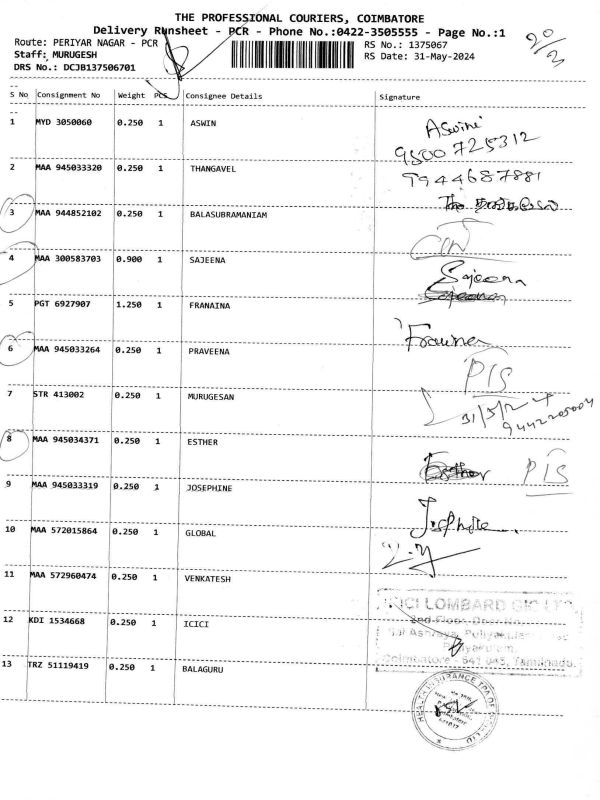 THE PROFESSIONAL COURIERS, COIMBATORE
Delivery Runsheet - PCR - Phone No.:0422-3505555 - Page No.:1
Route: PERIYAR NAGAR - PCR
RS No.: 1375067
Staff: MURUGESH
RS Date: 31-May-2024
DRS No.: DCJB137506701
20/3
S No Consignment No Weight PCS Consignee Details Signature
1 MYD 3050060 0.250 1 ASWIN
Aswini
9500725312
2 MAA 945033320 0.250 1 THANGAVEL
9944687881
3 MAA 944852102 0.250 1 BALASUBRAMANIAM
4 MAA 300583703 0.900 1 SAJEENA
Sajeena
5 PGT 6927907 1.250 1 FRANAINA
6 MAA 945033264 0.250 1 PRAVEENA
PIS
7 STR 413002 0.250 1 MURUGESAN
31/5/24
8 MAA 945034371 0.250 1 ESTHER
Esther PIS
9 MAA 945033319 0.250 1 JOSEPHINE
10 MAA 572015864 0.250 1 GLOBAL
11 MAA 572960474 0.250 1 VENKATESH
12 KDI 1534668 0.250 1 ICICI
ICICI LOMBARD GIC LTD
2nd Floor, Door No.
Sai Ashraya, Puliyakulam
Puliyakulam,
Coimbatore - 641 045, Tamilnadu.
13 TRZ 51119419 0.250 1 BALAGURU
HEALTH INSURANCE TPA OF